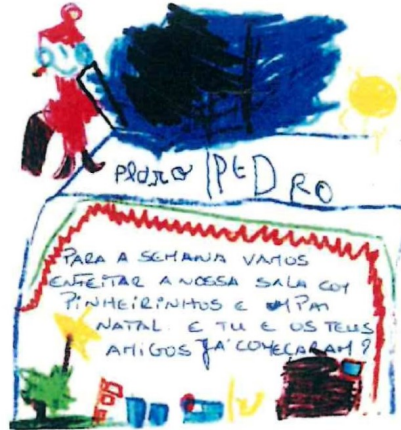 Pedro PEDRO
PARA A SEMANA VAMOS
ENFEITAR A NOSSA SALA COM
PINHEIRINHOS E UM PAI
NATAL. E TU E OS TEUS
AMIGOS JÁ COMEÇARAM?